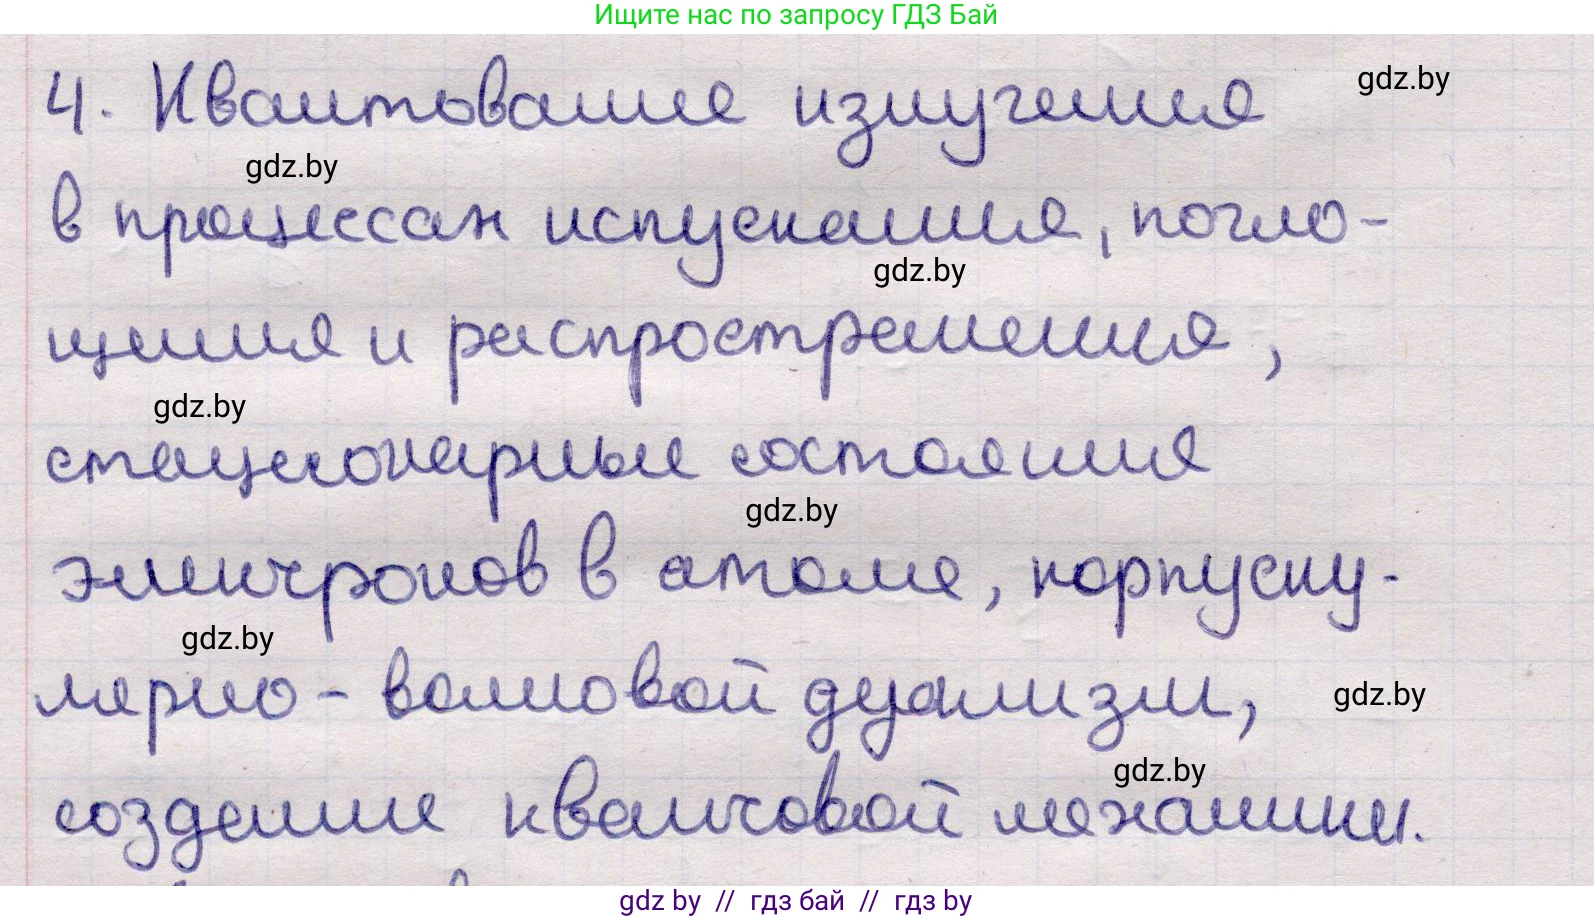 Ищите нас по запросу ГДЗ Бай
4. Квантование излучения
gdz.by
gdz.by
в процессах испускания, погло-
gdz.by
щения и распространения,
gdz.by
стационарные состояния
gdz.by
электронов в атоме, корпуску-
gdz.by
лярно-волновой дуализм,
gdz.by
gdz.by
создание квантовой механики.
gdz by // гдз бай // гдз by